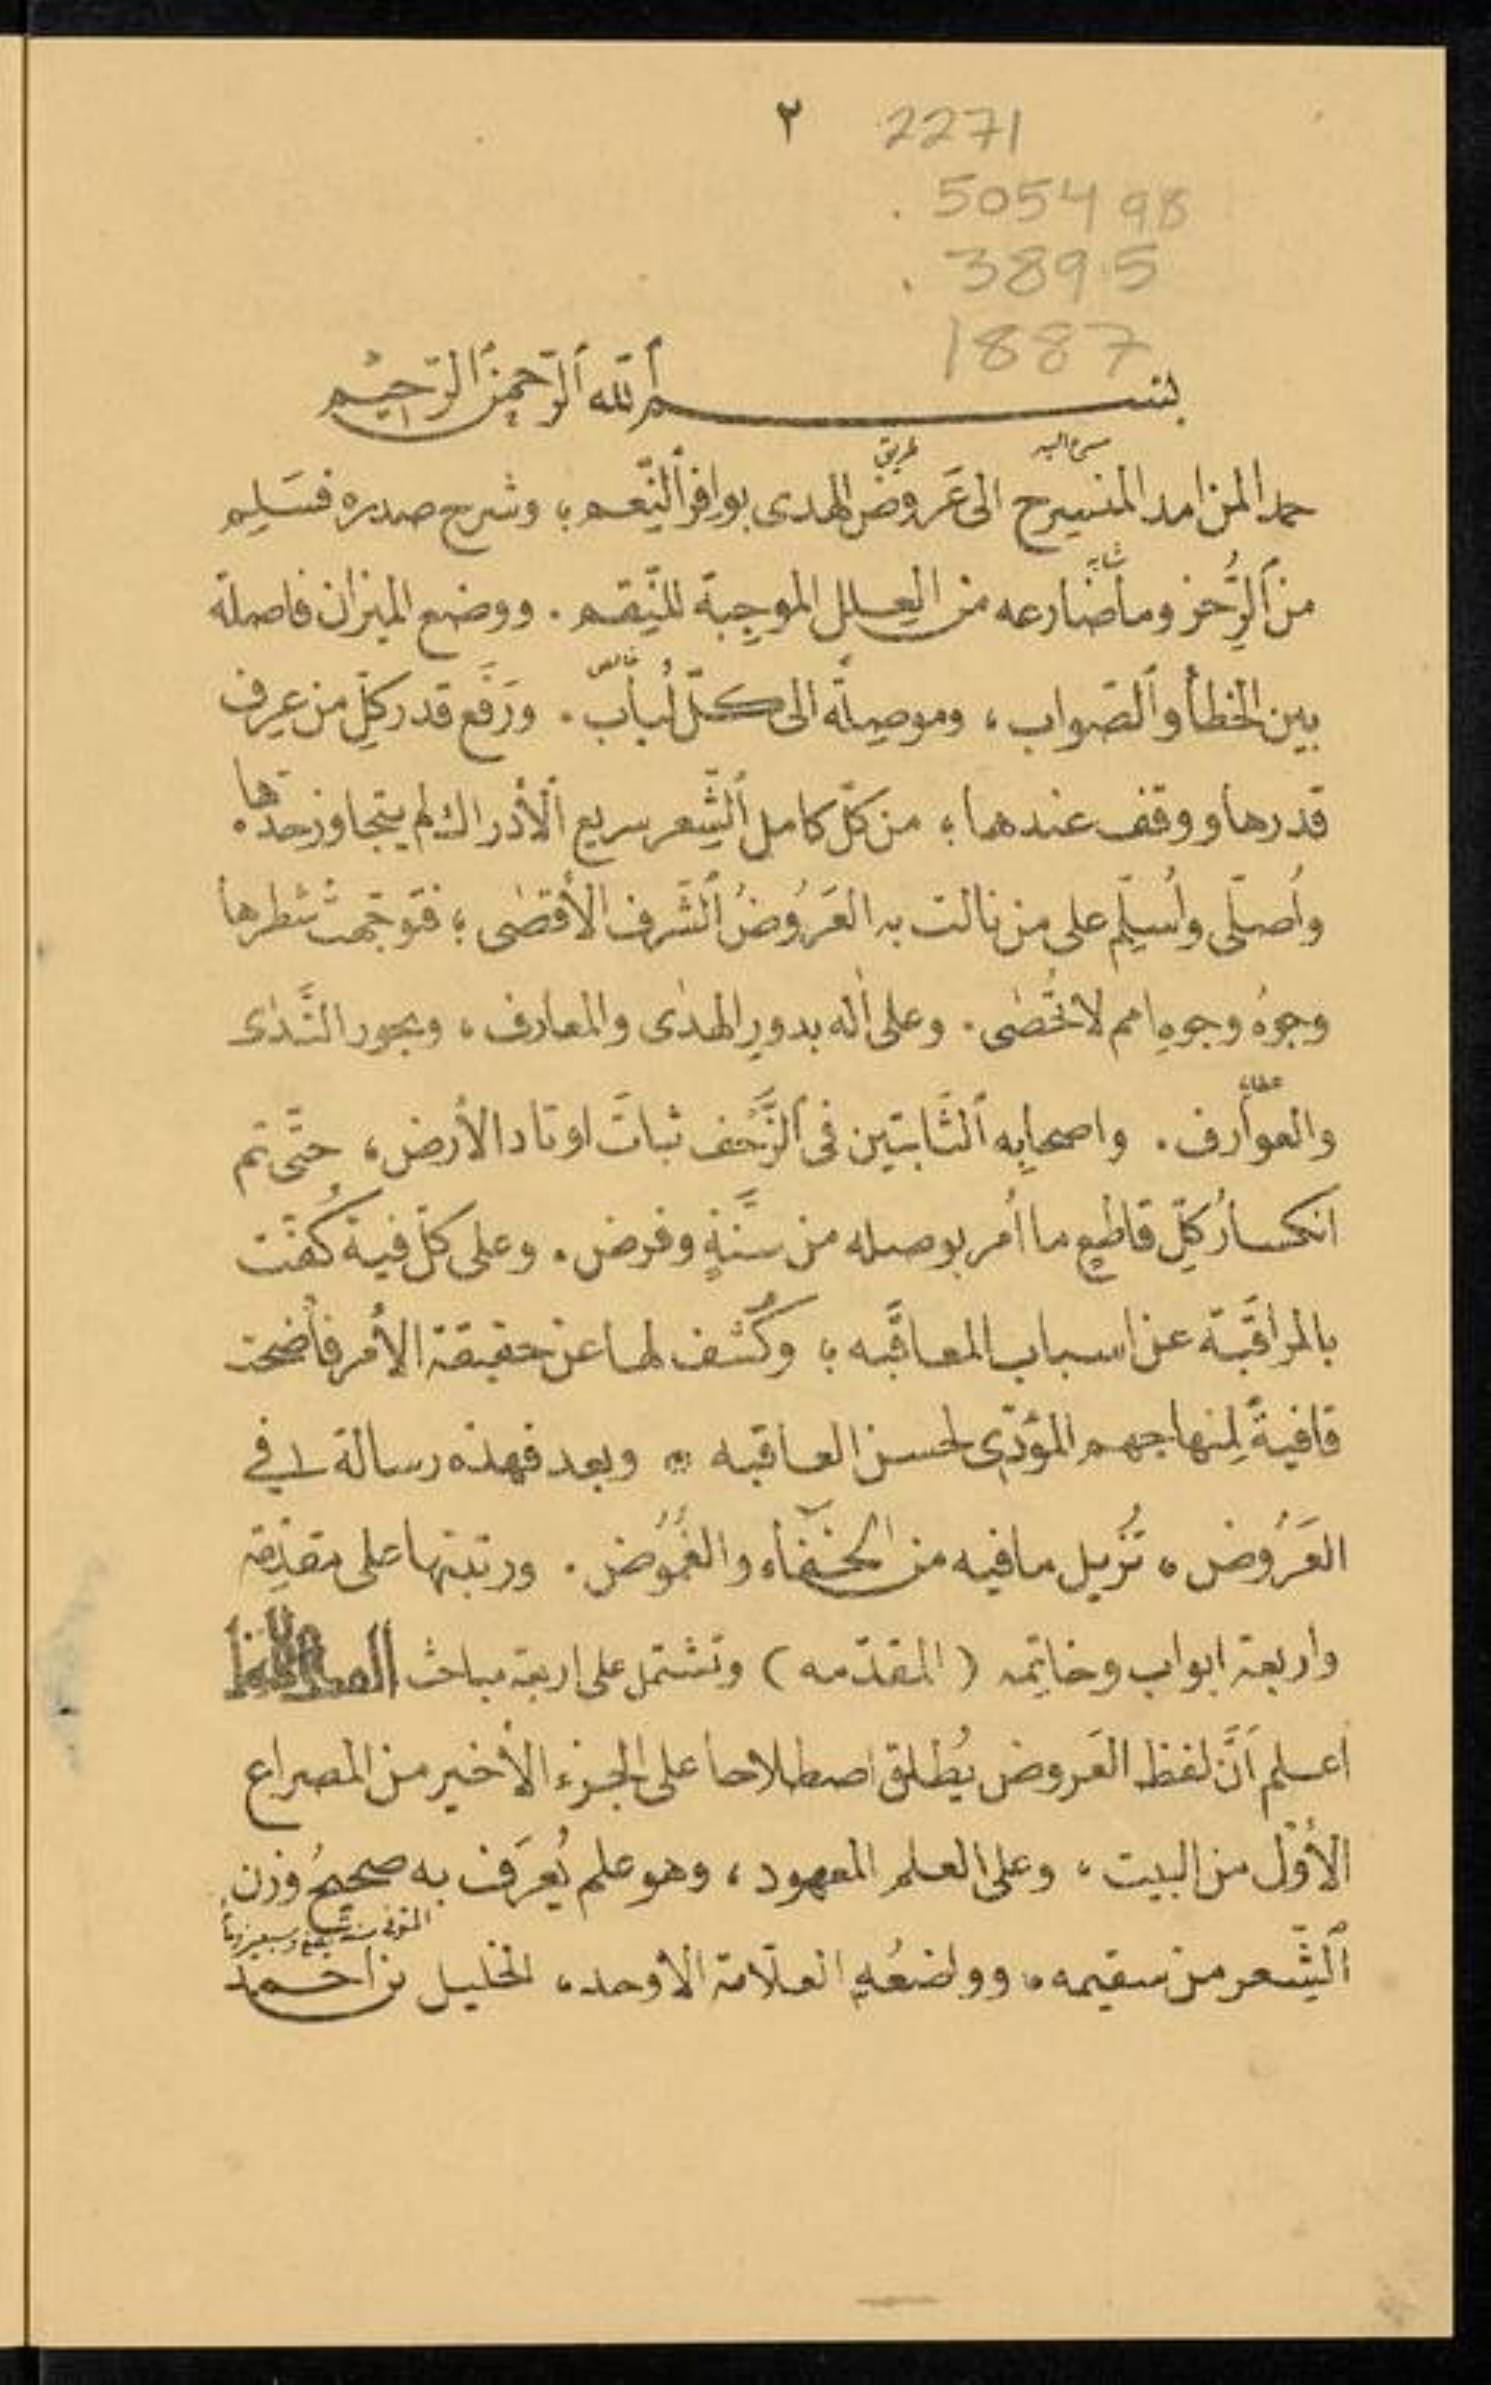 ٢ 2271
. 5054 98
. 389.5
1887
بسم ٱلله ٱلرّحمن ٱلرّحيم
طريق
حمدا لمن امد المنسرح الى عَروض الهدى بوافر ٱلنِّعم ؛ وشرح صدره فسَلِم
شابه
من ٱلزُّحز وما ضارعه من العِلل الموجِبة للنِّقم . ووضع الميزان فاصلة
خالص
بين الخطأ وٱلصّواب ، وموصِلةً الى كلّ لُباب . ورَفَع قدر كلِّ من عرف
قدرها ووقف عندها ؛ من كلّ كامل ٱلشِّعر سريع ٱلأدراك لم يتجاوز حدّها .
واُصلّى واُسلِّم على من نالت به العَرُوضُ ٱلشّرف الأقصٰى ؛ فتوجّهت شطرها
وجوهُ وجوهِ امم لا تُحْصٰى . وعلى اٰله بدورِ الهدٰى والمعارف ، وبحور النَّدٰى
عطايا
والعوارف . واصحابِه ٱلثَّابتين فى ٱلزَّحْف ثباتَ اوتاد الأرض ، حتّى تم
انكسارُ كلِّ قاطعٍ ما اُمر بوصله من سنّةٍ وفرض . وعلى كلّ فية كُفّت
بالمراقَبة عن اسباب المعاقَبه ؛ وكُشف لها عن حقيقة الأمر فأضحت
قافيةً لِمنهاجهم المؤدّى لحسن العاقبه * وبعد فهذه رسالة فى
العَرُوض ، تُزيل ما فيه من الخفآء والغُمُوض . ورتبتها على مقدِّمة
واربعة ابواب وخاتِمه ( المقدّمه ) وتشتمل على اربعة مباحث
اعلم اَنَّ لفظ العَروض يُطلق اصطلاحا على الجزء الأخير من المصراع
الأوّل من البيت ، وعلى العلم المعهود ، وهو علم يُعرَف به صحيحُ وزن
المتوفى سنة
ٱلشِّعر من سقيمه ، وواضعُه العلّامة الأوحد ، الخليل بن احمد